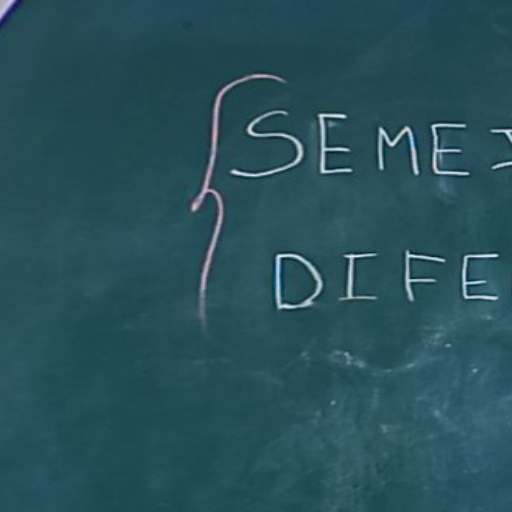 SEME
DIFE